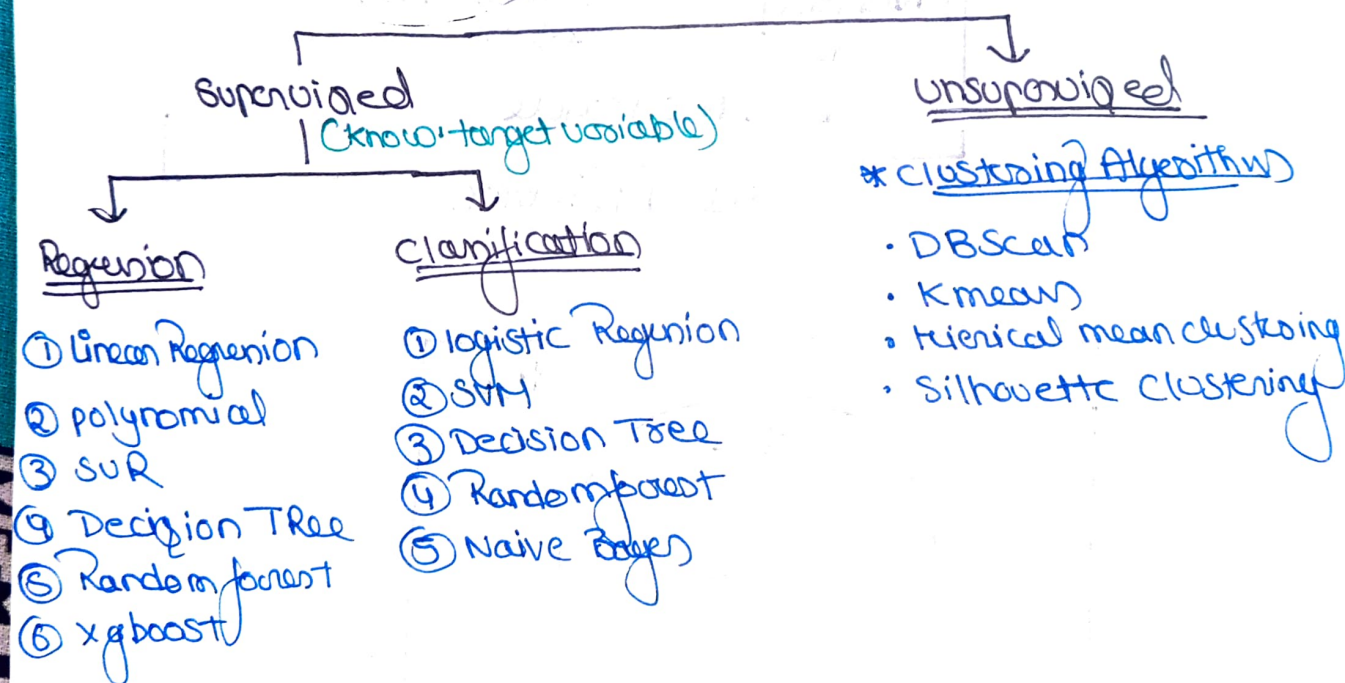 Supervised
(know target variable)
Regression
① Linear Regression
② polynomical
③ SVR
④ Decision TRee
⑤ Random forest
⑥ xgboost
Classification
① logistic Regression
② SVM
③ Decision Tree
④ Random forest
⑤ Naive Bayes
Unsupervised
* Clustering Algorithms
• DBScan
• Kmeans
• Hierical mean clustering
• Silhouette Clustering